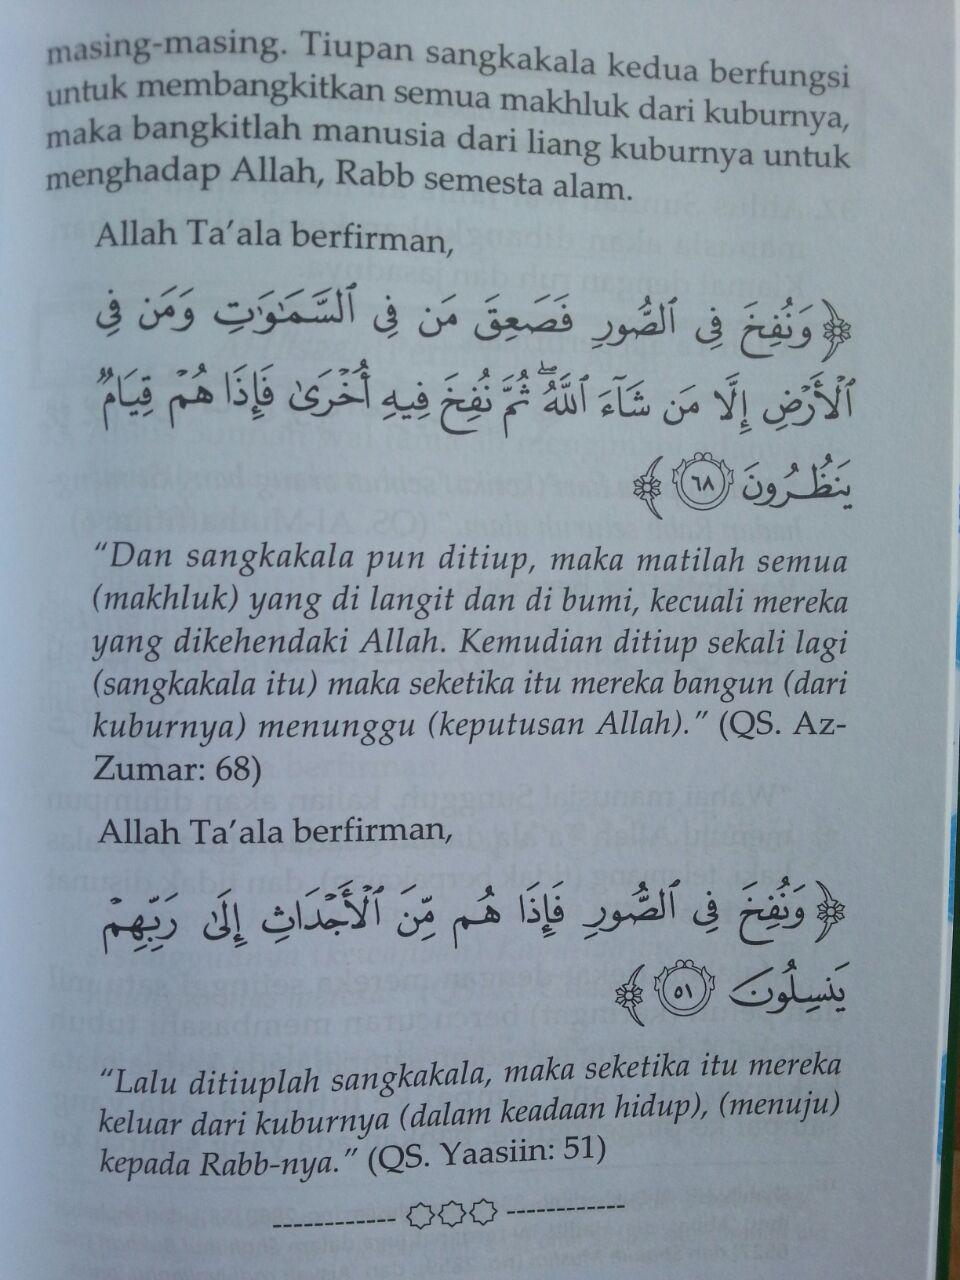 masing-masing. Tiupan sangkakala kedua berfungsi
untuk membangkitkan semua makhluk dari kuburnya,
maka bangkitlah manusia dari liang kuburnya untuk
menghadap Allah, Rabb semesta alam.
Allah Ta’ala berfirman,
﴿ وَنُفِخَ فِى ٱلصُّورِ فَصَعِقَ مَن فِى ٱلسَّمَـٰوَٰتِ وَمَن فِى
ٱلْأَرْضِ إِلَّا مَن شَآءَ ٱللَّهُ ۖ ثُمَّ نُفِخَ فِيهِ أُخْرَىٰ فَإِذَا هُمْ قِيَامٌ
يَنظُرُونَ ٦٨ ﴾
“Dan sangkakala pun ditiup, maka matilah semua
(makhluk) yang di langit dan di bumi, kecuali mereka
yang dikehendaki Allah. Kemudian ditiup sekali lagi
(sangkakala itu) maka seketika itu mereka bangun (dari
kuburnya) menunggu (keputusan Allah).” (QS. Az-
Zumar: 68)
Allah Ta’ala berfirman,
﴿ وَنُفِخَ فِى ٱلصُّورِ فَإِذَا هُم مِّنَ ٱلْأَجْدَاثِ إِلَىٰ رَبِّهِمْ
يَنسِلُونَ ٥١ ﴾
“Lalu ditiuplah sangkakala, maka seketika itu mereka
keluar dari kuburnya (dalam keadaan hidup), (menuju)
kepada Rabb-nya.” (QS. Yaasiin: 51)